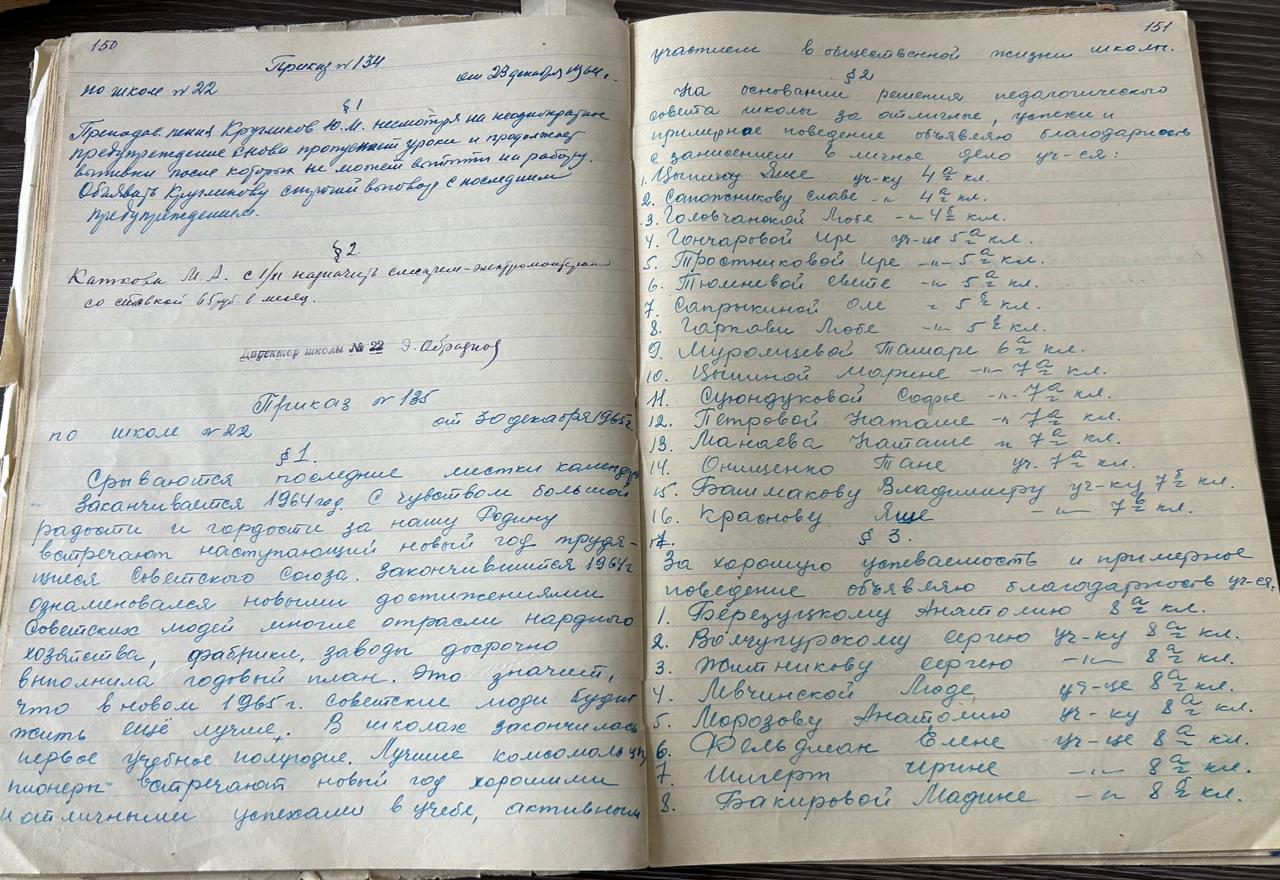 150
Приказ № 134
по школе № 22 от 29 декабря 1964 г.
§ 1
Преподав. пения Кругликов Ю.М. несмотря на неоднократное
предупреждение снова пропускает уроки и продолжает
выпивки после которых не может выйти на работу.
Объявить Кругликову строгий выговор с последним
предупреждением.
§ 2
Каткова М. А. с 1/II назначить слесарем-электромонтером
со ставкой 65 руб. в месяц.
Директор школы № 22 Э. Образцов
Приказ № 135
по школе № 22 от 30 декабря 1965 г.
§ 1
Срываются последние листки календаря
Заканчивается 1964 год. С чувством большой
радости и гордости за нашу Родину
встречают наступающий новый год трудя-
щиеся Советского Союза. Закончившийся 1964 г
ознаменовался новыми достижениями
Советских людей многие отрасли нардного
хозяйства, фабрики, заводы досрочно
выполнила годовый план. Это значит,
что в новом 1965 г. советские люди будут
жить ещё лучше. В школах закончилась
первое учебное полугодие. Лучшие комсомольцы
пионеры встречают новый год хорошими
и отличными успехами в учебе, активным
151
участием в общественной жизни школы.
§ 2
На основании решения педагогического
совета школы за отличные, успехи и
примерное поведение объявляю благодарность
с занесением в личное дело уч-ся:
1. Цыпину Яше уч-ку 4 а кл.
2. Сапожникову Славе -"- 4 а кл.
3. Головчанской Любе -"- 4 б кл.
4. Гончаровой Ире уч-це 5 а кл.
5. Тростниковой Ире -"- 5 а кл.
6. Тюменевой Свете -"- 5 а кл.
7. Сапрыкиной Оле " 5 б кл.
8. Гаркави Любе -"- 5 б кл.
9. Муромцевой Тамаре 6 а кл.
10. Цыпиной Марине -"- 7 а кл.
11. Суюндуковой Софье -"- 7 а кл.
12. Петровой Наташе -"- 7 а кл.
13. Манаева Наташе " 7 а кл.
14. Онищенко Тане уч. 7 а кл.
15. Башмакову Владимиру уч-ку 7 б кл.
16. Краснову Яше -"- 7 б кл.
17. § 3.
За хорошую успеваемость и примерное
поведение объявляю благодарность уч-ся.
1. Березуцкому Анатолию 8 а кл.
2. Волчупурскому Сергею уч-ку 8 а кл.
3. Житникову Сергею -"- 8 а кл.
4. Левчинской Люде уч-це 8 а кл.
5. Морозову Анатолию уч-ку 8 а кл.
6. Фельдман Елене уч-це 8 а кл.
7. Шигерт Ирине -"- 8 а кл.
8. Бакировой Мадине -"- 8 б кл.